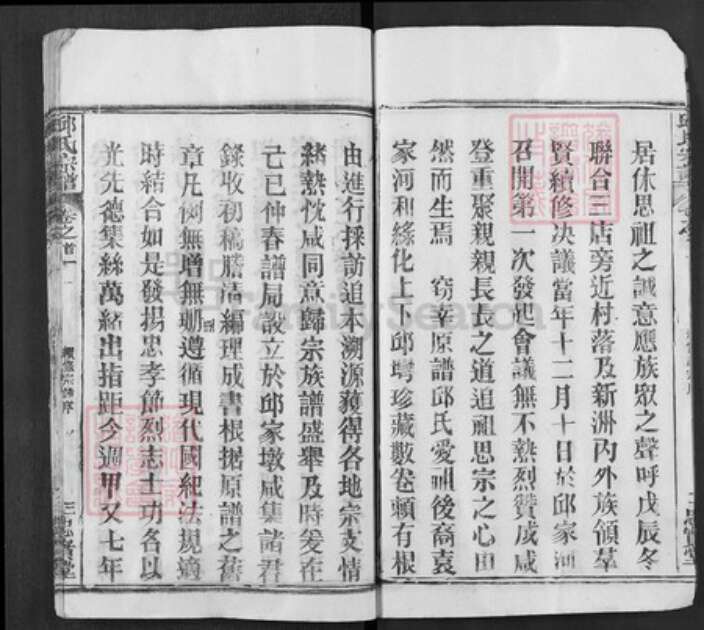 居休思祖之誠意應族眾之聲呼戊辰冬
聯合三店旁近村落及新洲內外族領羣
賢續修决議當年十二月十日於邱家河
召開第一次發起會議無不熱烈贊成咸
登重聚親親長長之道追祖思宗之心由
然而生焉　窃幸原譜邱氏愛祖後裔袁
家河和綠化上下邱塆珍藏數卷頼有根
由進行採訪追本溯源獲得各地宗支情
緒熱忱咸同意歸宗族譜盛舉及時爰在
己巳仲春譜局設立於邱家墩咸集諸君
錄收初稿謄清編理成書根据原譜之舊
章凡例無增無刪遵循現代國紀法規適
時結合如是發揚忠孝節烈志士功各以
光先德集絲萬緒出指距今週甲又七年
邱氏宗譜
卷之首一
續修宗譜序
三思賢堂
FamilySearch